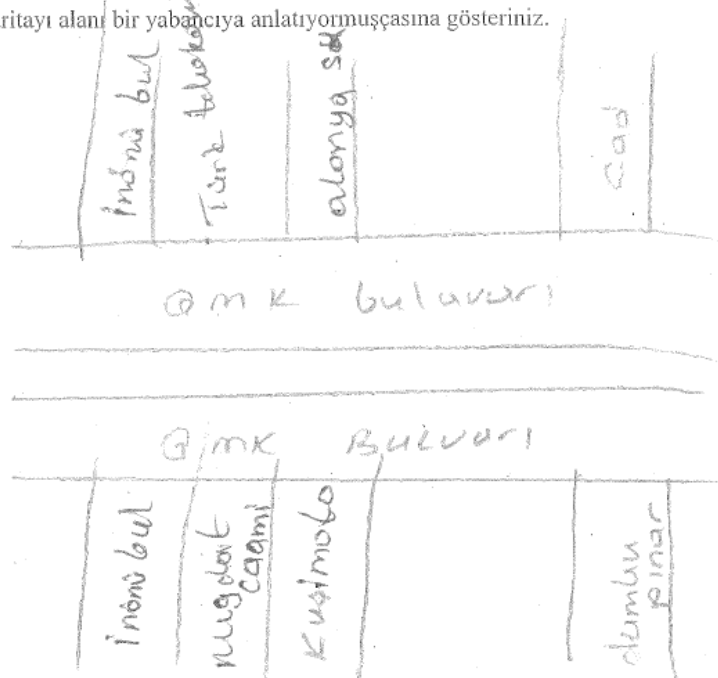 ritayı alanı bir yabancıya anlatıyormuşçasına gösteriniz.
İnönü bul
Türk telekom
alanya sk
cad
GMK bulavarı
GMK Bulvarı
İnönü bul
mugdat
caami
Kuşimoto
dumlu
pınar